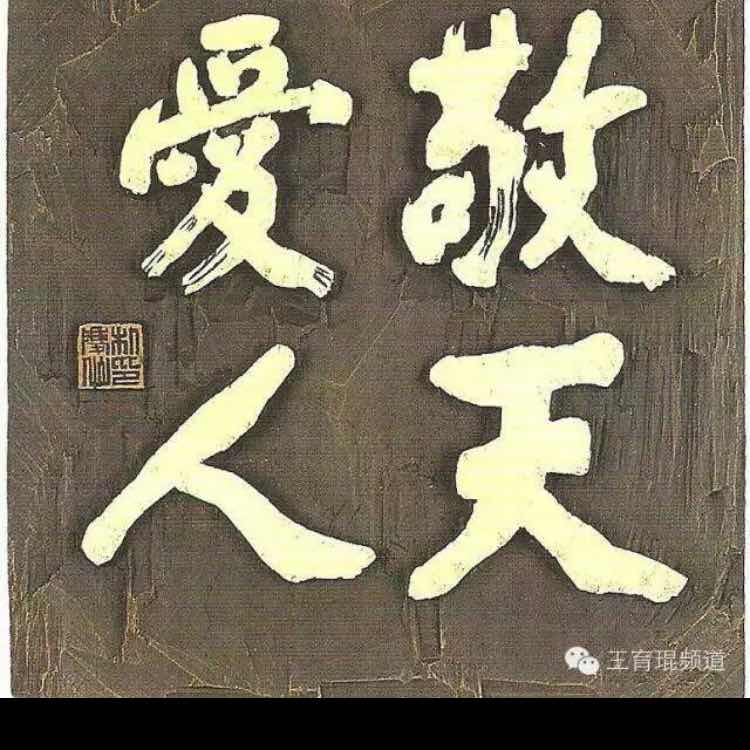 敬天
愛人
王育琨频道